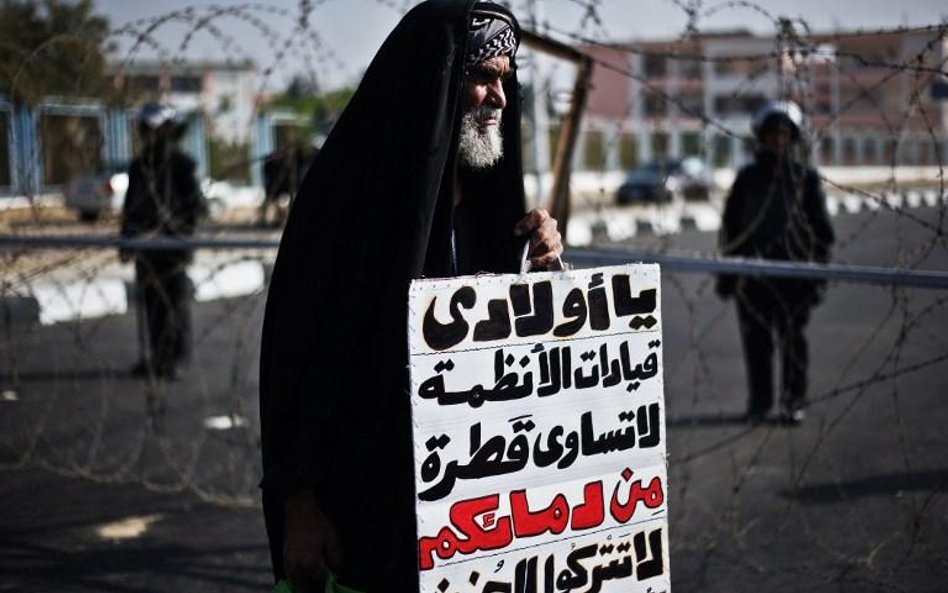 يا أولادى
قيادات الأنظمة
لا تساوى قطرة
مِن دمائكم
لا تتركوا